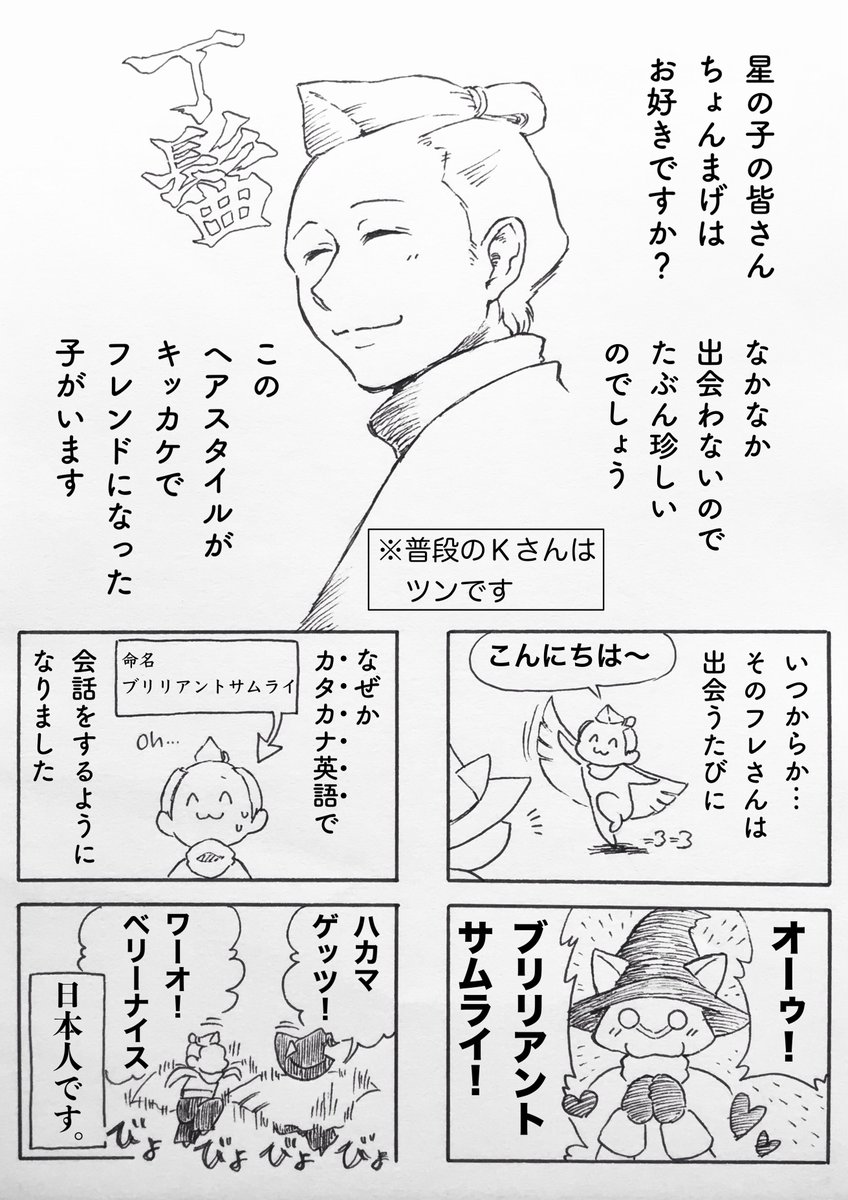 星の子の皆さん
ちょんまげは
お好きですか？
丁髷
なかなか
出会わないので
たぶん珍しい
のでしょう
この
ヘアスタイルが
キッカケで
フレンドになった
子がいます
※普段のKさんは
ツンです
いつからか…
そのフレさんは
出会うたびに
こんにちは〜
=3=3
オーゥ！
ブリリアント
サムライ！
なぜか
カタカナ英語で
会話をするように
なりました
命名
ブリリアントサムライ
Oh…
ハカマ
ゲッツ！
ワーオ！
ベリーナイス
日本人です。
びょ
びょ
びょ
びょ